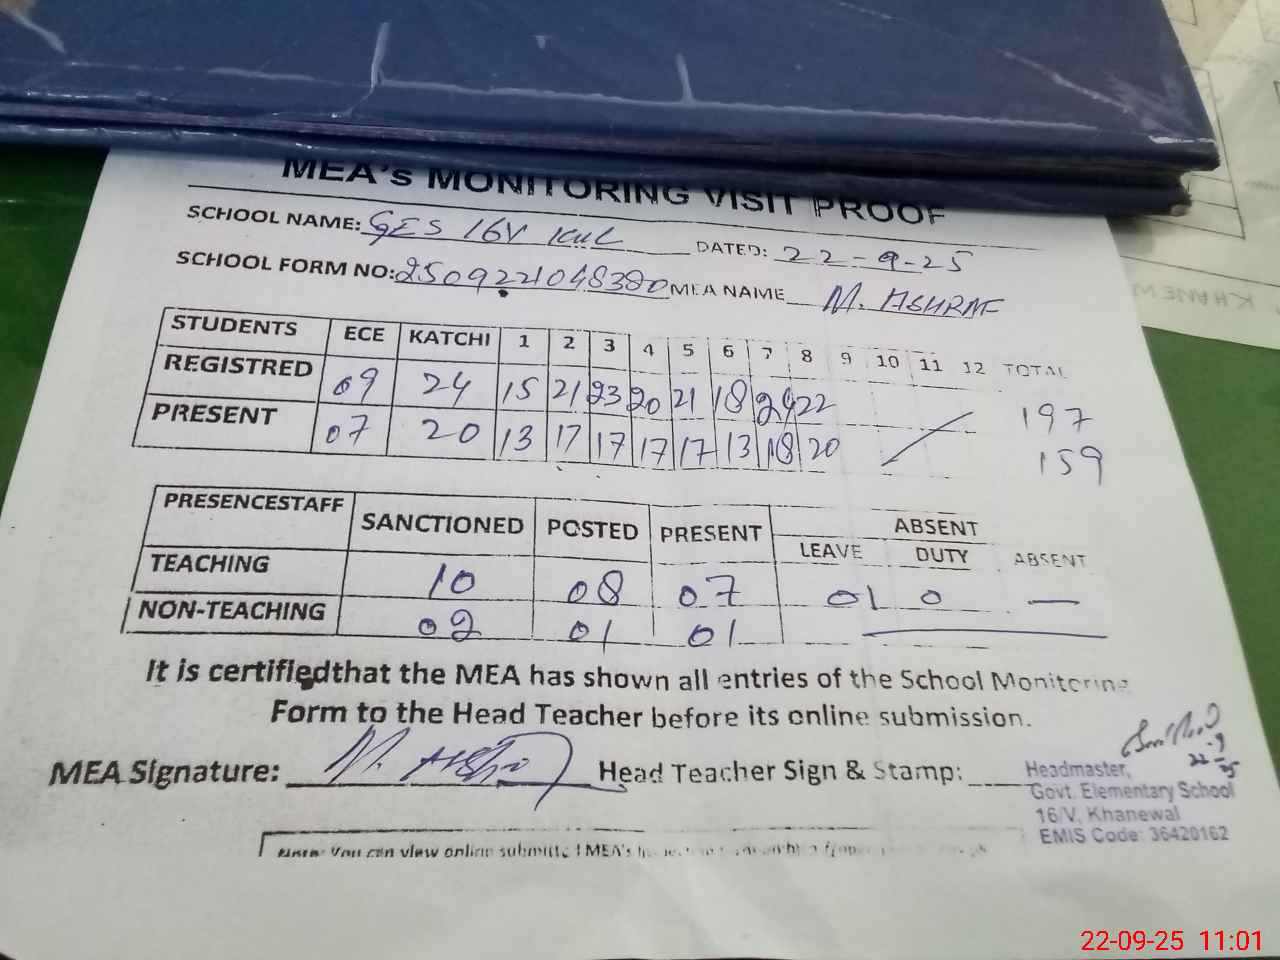 MEA's MONITORING VISIT PROOF
SCHOOL NAME: GES 16V KWL DATED: 22-9-25
SCHOOL FORM NO: 2509221048380 MEA NAME M. ASHRAF
STUDENTS ECE KATCHI 1 2 3 4 5 6 7 8 9 10 11 12 TOTAL
REGISTRED 09 24 15 21 23 20 21 18 24 22 197
PRESENT 07 20 13 17 17 17 17 13 18 20 159
PRESENCESTAFF SANCTIONED POSTED PRESENT ABSENT
LEAVE DUTY ABSENT
TEACHING 10 08 07 01 0 —
NON-TEACHING 02 01 01
It is certifiedthat the MEA has shown all entries of the School Monitoring
Form to the Head Teacher before its online submission.
MEA Signature: M. Ashraf Head Teacher Sign & Stamp:
22-9-25
Headmaster,
Govt. Elementary School
16/V, Khanewal
EMIS Code: 36420162
Note: You can view online submitted MEA's
22-09-25 11:01